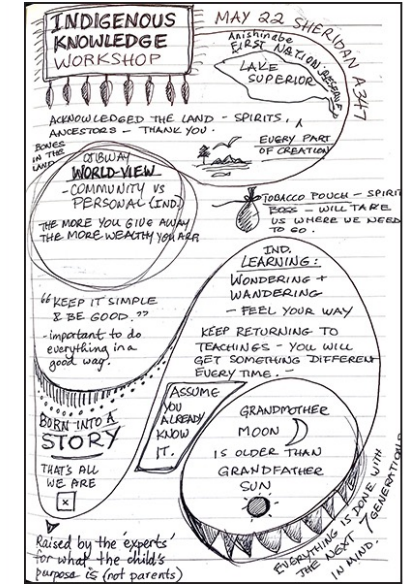 INDIGENOUS
KNOWLEDGE
WORKSHOP
MAY 22 SHERIDAN A347
Anishinabe
FIRST NATION RESERVE
LAKE
SUPERIOR
ACKNOWLEDGED THE LAND - SPIRITS,
ANCESTORS - THANK YOU.
EVERY PART
OF CREATION
BONES
IN THE
LAND
OJIBWAY
WORLD-VIEW
- COMMUNITY VS
PERSONAL (IND.)
THE MORE YOU GIVE AWAY
THE MORE WEALTHY YOU ARE
TOBACCO POUCH - SPIRIT
BOSS - WILL TAKE
US WHERE WE NEED
TO GO.
IND.
LEARNING:
WONDERING +
WANDERING
- FEEL YOUR WAY
KEEP RETURNING TO
TEACHINGS - YOU WILL
GET SOMETHING DIFFERENT
EVERY TIME. -
"KEEP IT SIMPLE
& BE GOOD."
- important to do
everything in a
good way.
ASSUME
YOU
ALREADY
KNOW
IT.
BORN INTO A
STORY
THAT'S ALL
WE ARE
GRANDMOTHER
MOON
IS OLDER THAN
GRANDFATHER
SUN
EVERYTHING IS DONE WITH
THE NEXT 7 GENERATIONS
IN MIND.
Raised by the 'experts'
for what the child's
purpose is (not parents)